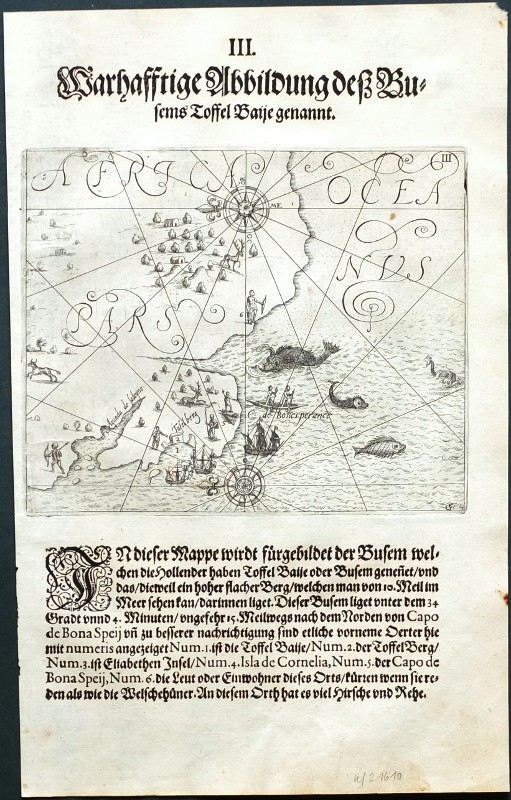 III.
Warhafftige Abbildung deß Bu-
sems Toffel Baije genannt.
III
AFRICA
OCEA
NUS
PARS
6
C. de Bona Esperance
Tafelberg
IN dieser Mappe wirdt fürgebildet der Busem wel-
chen die Hollender haben Toffel Baije oder Busem geneñet/vnd
das/dieweil ein hoher flacher Berg/welchen man von 10. Meil im
Meer sehen kan/darinnen liget. Dieser Busem liget vnter dem 34
Gradt vnnd 4. Minuten/vngefehr 15. Meilwegs nach dem Norden von Capo
de Bona Speij/vñ zu besserer nachrichtigung sind etliche vorneme Oerter hie
mit numeris angezeiget Num. 1. ist die Toffel Baije/Num. 2. der Toffel Berg/
Num. 3. ist Eliabethen Insel/Num. 4. Isla de Cornelia, Num. 5. der Capo de
Bona Speij, Num. 6. die Leut oder Einwohner dieses Orts/kürten wenn sie re-
den als wie die Welschehüner. An diesem Orth hat es viel Hirsche vnd Rehe.